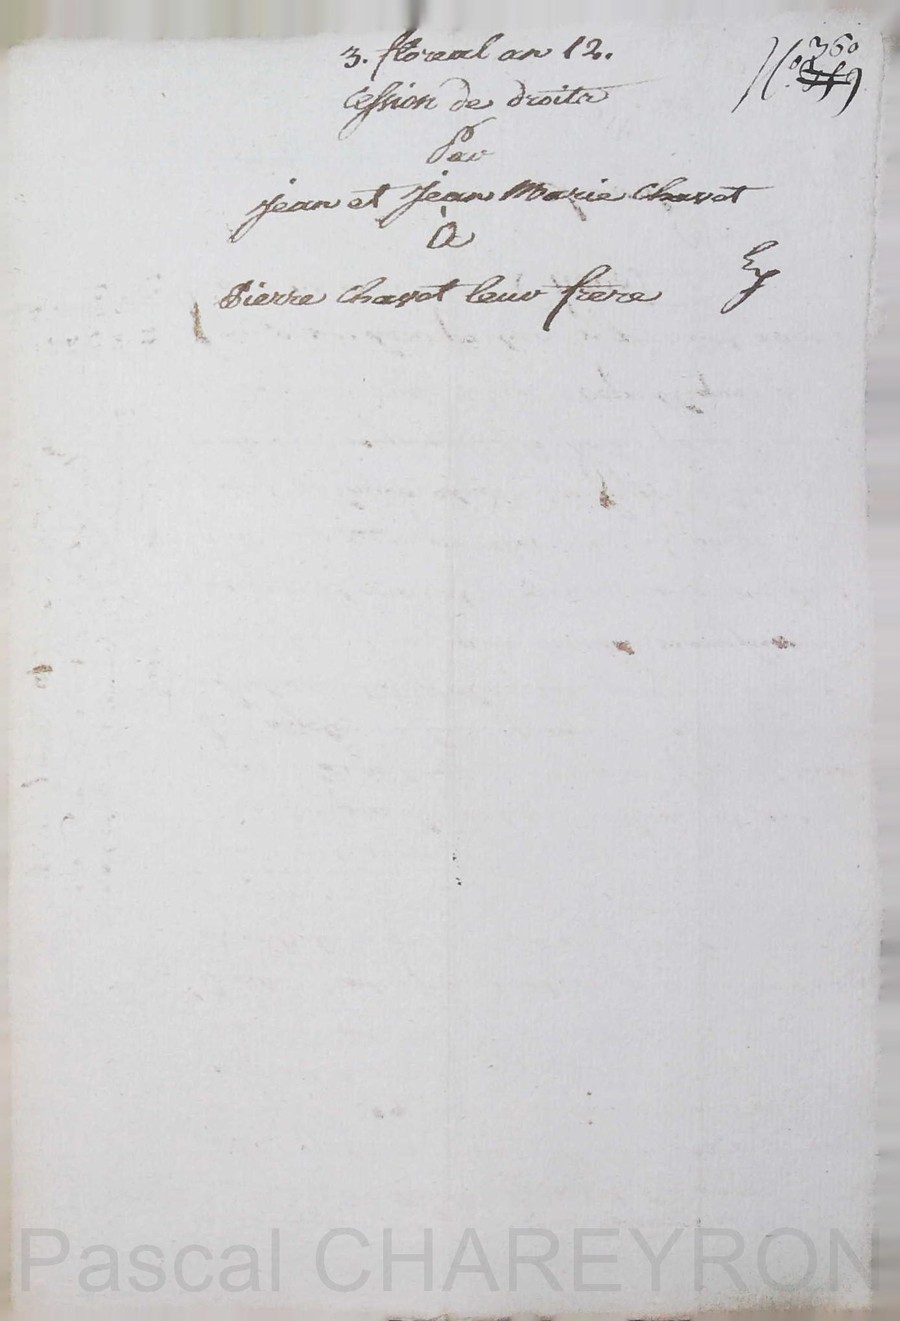 3. floreal an 12.
N.º 360
359
Cession de droits
Par
jean et jean Marie Chavot
A
Pierre Chavot leur frere
Pascal CHAREYRON